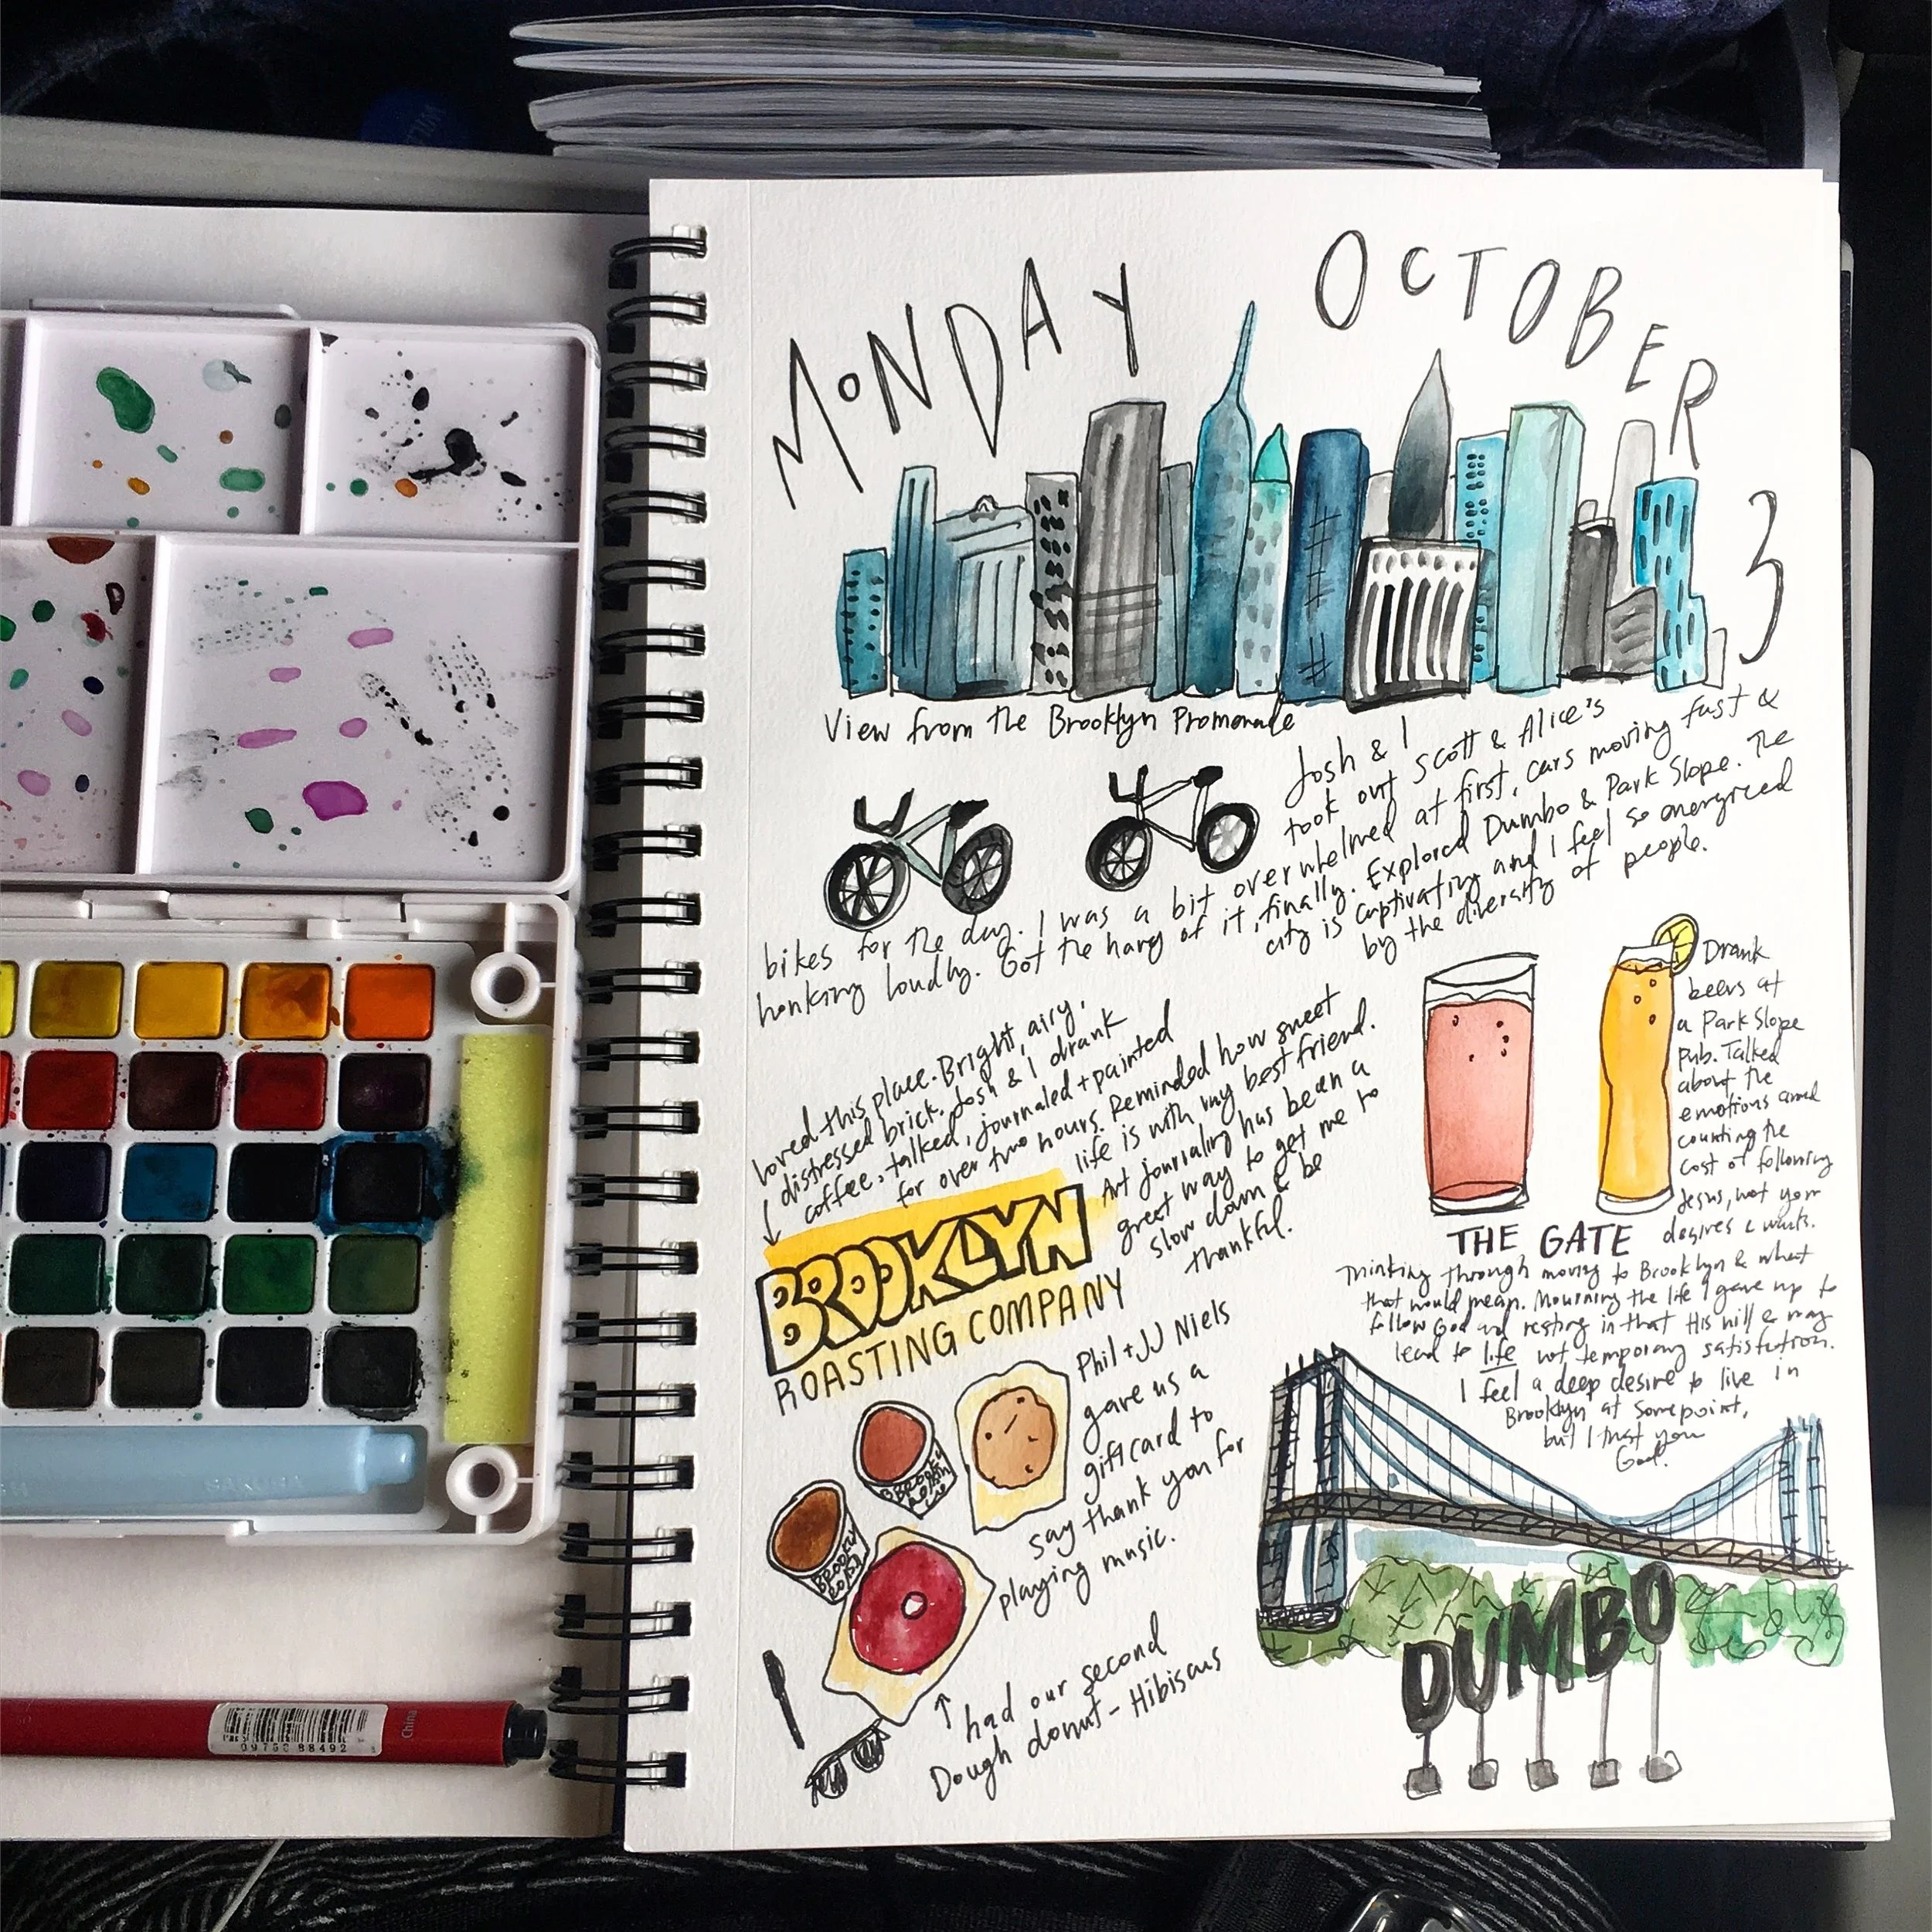 MONDAY OCTOBER
3
View from the Brooklyn Promenade
Josh & I
took out Scott & Alice's
bikes for the day. I was a bit overwhelmed at first, cars moving fast &
honking loudly. Got the hang of it, finally. Explored Dumbo & Park Slope. The
city is captivating and I feel so energized
by the diversity of people.
loved this place. Bright, airy,
distressed brick. Josh & I drank
coffee, talked, journaled + painted
for over two hours. Reminded how sweet
life is with my best friend.
Art journaling has been a
great way to get me to
slow down & be
thankful.
BROOKLYN
ROASTING COMPANY
Drank
beers at
a Park Slope
pub. Talked
about the
emotions and
counting the
cost of following
Jesus, not your
desires & wants.
THE GATE
Thinking through moving to Brooklyn & what
that would mean. Mourning the life I gave up to
follow God and resting in that His will & way
lead to life not temporary satisfaction.
I feel a deep desire to live in
Brooklyn at some point,
but I trust you
God.
Phil + JJ Niels
gave us a
giftcard to
say thank you for
playing music.
BROOKLYN
ROASTIN
BROOKLY
ROAST
had our second
Dough donut - Hibiscus
DUMBO
SAKURA
China
88492